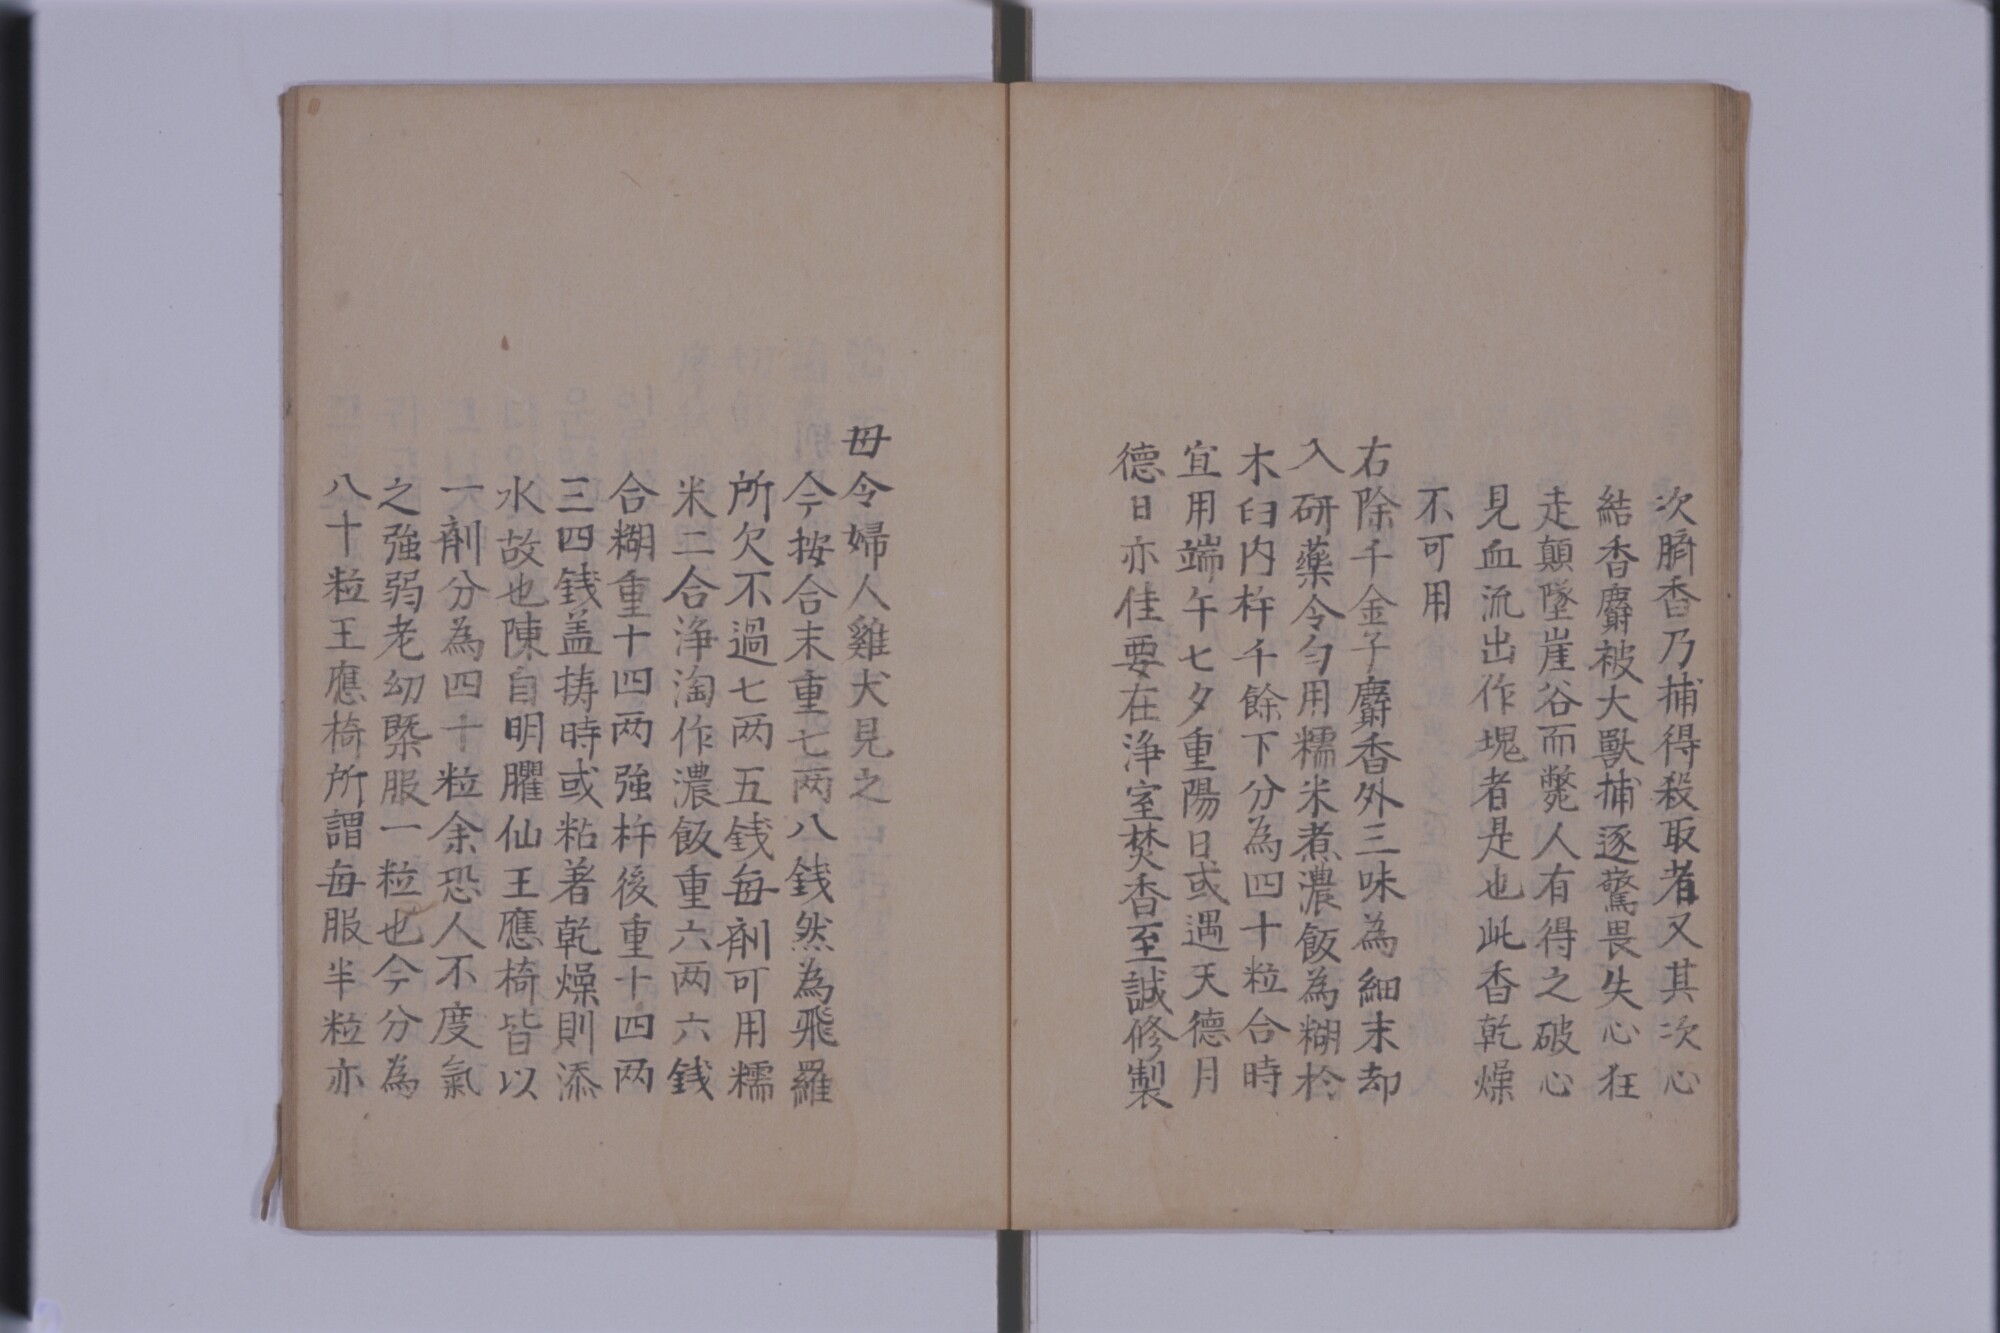 次臍香乃捕得殺取者又其次心
結香麝被大獸捕逐驚畏失心狂
走顛墜崖谷而斃人有得之破心
見血流出作塊者是也此香乾燥
不可用
右除千金子麝香外三味為細末却
入研藥令勻用糯米煮濃飯為糊於
木臼內杵千餘下分為四十粒合時
宜用端午七夕重陽日或遇天德月
德日亦佳要在淨室焚香至誠修製
毋令婦人雞犬見之
今按合末重七两八錢然為飛羅
所欠不過七两五錢每劑可用糯
米二合淨淘作濃飯重六两六錢
合糊重十四两強杵後重十四两
三四錢盖擣時或粘着乾燥則添
水故也陳自明臞仙王應椅皆以
一劑分為四十粒余恐人不度氣
之強弱老幼槩服一粒也今分為
八十粒王應椅所謂每服半粒亦